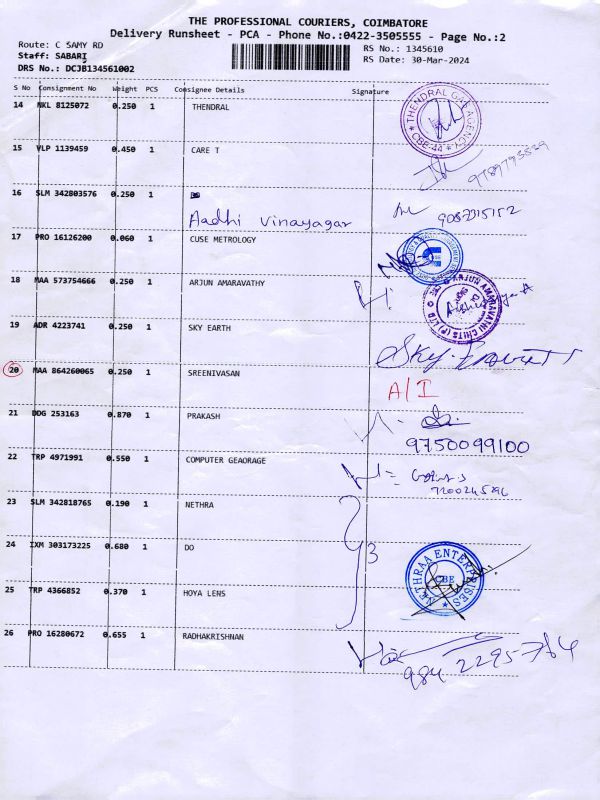 THE PROFESSIONAL COURIERS, COIMBATORE
Delivery Runsheet - PCA - Phone No.:0422-3505555 - Page No.:2
Route: C SAMY RD
RS No.: 1345610
Staff: SABARI
RS Date: 30-Mar-2024
DRS No.: DCJB134561002
S No Consignment No Weight PCS Consignee Details Signature
14 NKL 8125072 0.250 1 THENDRAL
THENDRAL GAS AGENCY CBE-44
15 VLP 1139459 0.450 1 CARE T
16 SLM 342803576 0.250 1
Aadhi Vinayagar
17 PRO 16126200 0.060 1 CUSE METROLOGY
18 MAA 573754666 0.250 1 ARJUN AMARAVATHY
ARJUN AMARAVATHI CHITS (P) LTD
19 ADR 4223741 0.250 1 SKY EARTH
20 MAA 864260065 0.250 1 SREENIVASAN
A/I
21 DDG 253163 0.870 1 PRAKASH
9750099100
22 TRP 4971991 0.550 1 COMPUTER GEAORAGE
23 SLM 342818765 0.190 1 NETHRA
24 IXM 303173225 0.680 1 DO
3
NETHRAA ENTERPRISES CBE
25 TRP 4366852 0.370 1 HOYA LENS
26 PRO 16280672 0.655 1 RADHAKRISHNAN